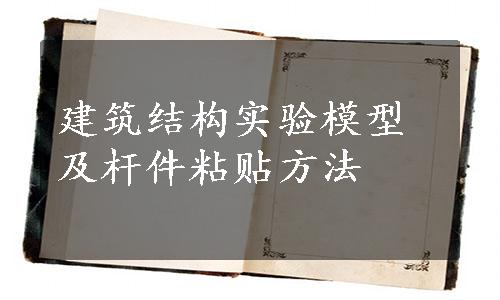 建筑结构实验模型
及杆件粘贴方法